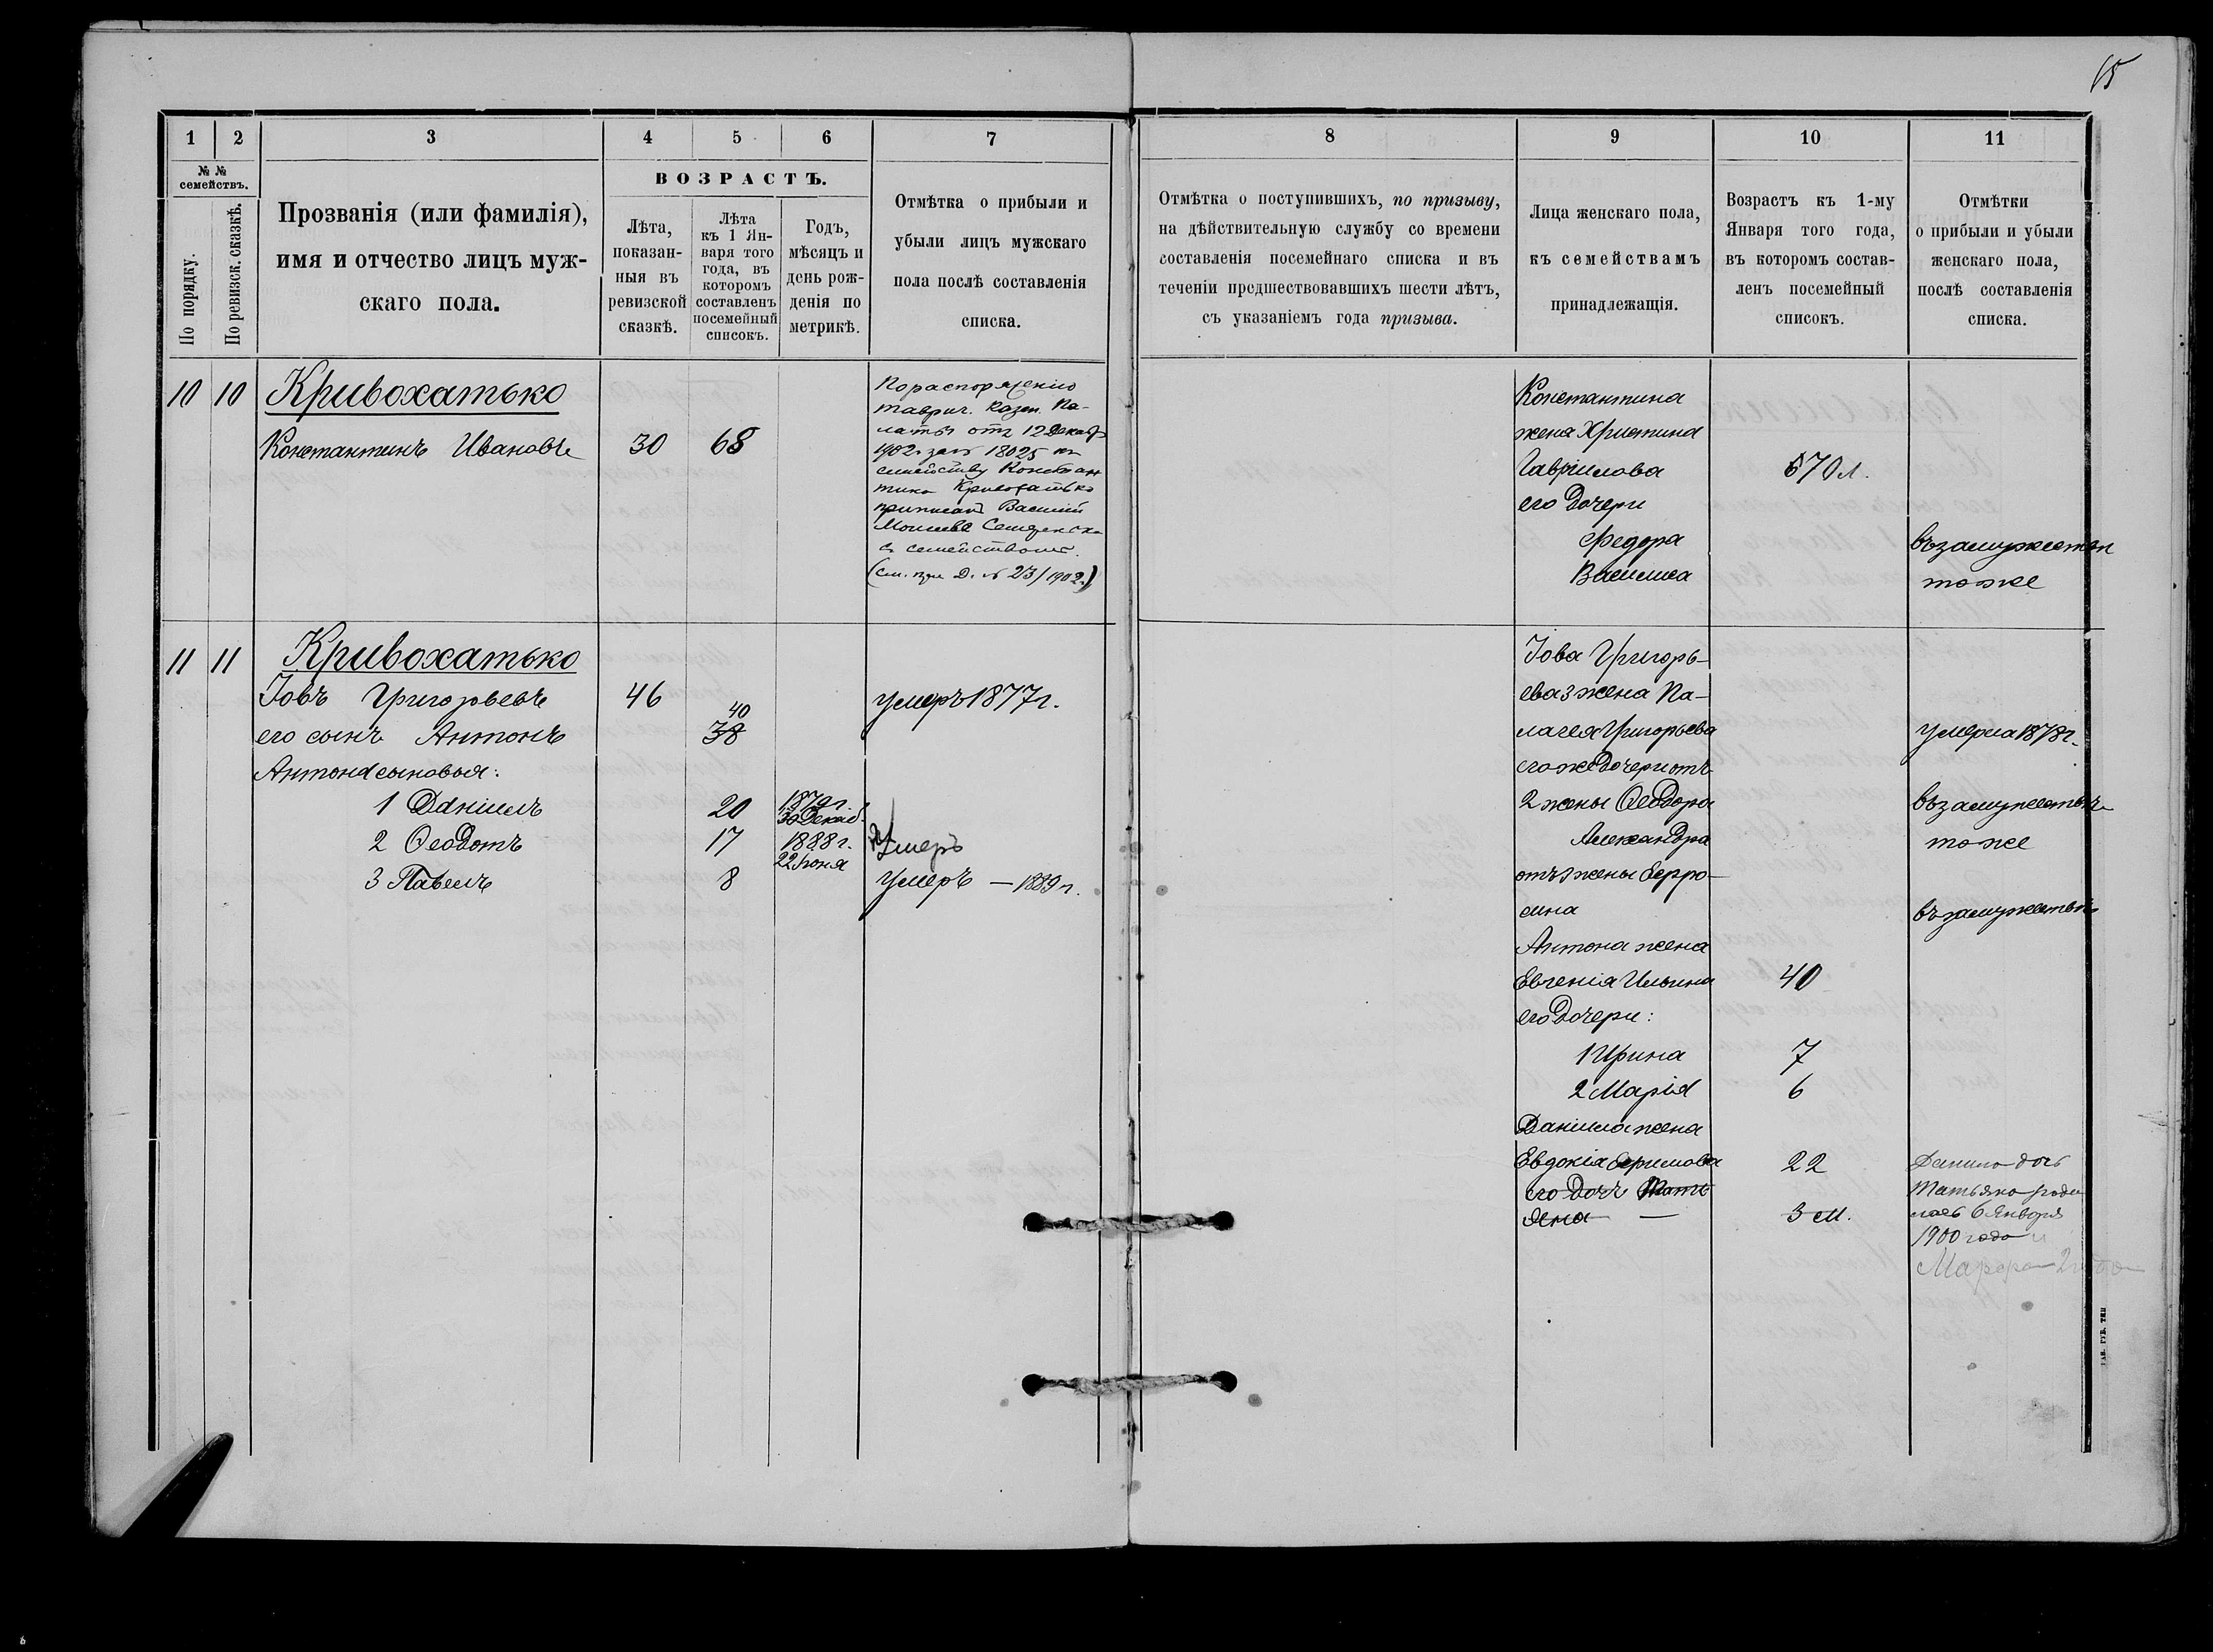 15
1 2 3 4 5 6 7 8 9 10 11
№ № семействъ.
По порядку.
По ревизск. сказкѣ.
Прозванія (или фамилія),
имя и отчество лицъ муж-
скаго пола.
ВОЗРАСТЪ.
Лѣта,
показан-
ныя въ
ревизской
сказкѣ.
Лѣта
къ 1 Ян-
варя того
года, въ
которомъ
составленъ
посемейный
списокъ.
Годъ,
мѣсяцъ и
день рож-
денія по
метрикѣ.
Отмѣтка о прибыли и
убыли лицъ мужскаго
пола послѣ составленія
списка.
Отмѣтка о поступившихъ, по призыву,
на дѣйствительную службу со времени
составленія посемейнаго списка и въ
теченіи предшествовавшихъ шести лѣтъ,
съ указаніемъ года призыва.
Лица женскаго пола,
къ семействамъ
принадлежащія.
Возрастъ къ 1-му
Января того года,
въ которомъ состав-
ленъ посемейный
списокъ.
Отмѣтки
о прибыли и убыли
женскаго пола,
послѣ составленія
списка.
10 10 Кривохатько
Константинъ Ивановъ 30 68
По распоряженію
таврич. Казен. Па-
латы отъ 12 Декаб.
1902 г за № 18025 къ
семейству Констан
тина Кривохатько
приписанъ Василій
Моисеевъ
съ семействомъ.
(см. при Д. № 23/1902 г.)
Константина
жена Христина
Гавриилова 70 л.
его дочери
Федора въ замужествѣ
Василиса тоже
11 11 Кривохатько
Іовъ Григорьевъ 46 умеръ 1877 г.
его сынъ Антонъ 40
38
Антона сыновья:
1 Даніилъ 20 1879 г.
30 Декаб.
2 Ѳеодотъ 17 1888 г.
22 Іюня
Умеръ
3 Павелъ 8 умеръ — 1889 г.
Іова Григорь-
ева 3 жена Па-
лагея Григорьева умерла 1878 г.
его же дочери отъ
2 жены Ѳеодора въ замужествѣ
Александра тоже
отъ 3 жены Ефро-
сина въ замужествѣ
Антона жена
Евгенія Ильина 40
его дочери:
1 Ирина 7
2 Марія 6
Даніила жена
Евдокія Ефимова 22
его дочь Тать
яна — 3 м.
Данила дочь
Татьяна роди
лась 6 Января
1900 года и
Марфа